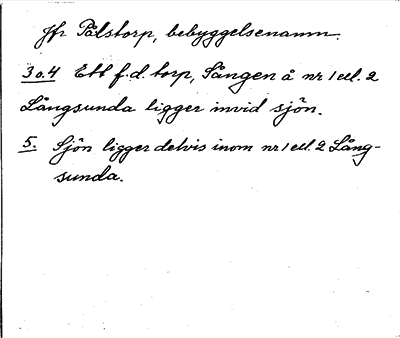 Jfr Pålstorp, bebyggelsenamn.
3 o. 4 Ett f.d. torp, Sången å nr 1 ell. 2
Långsunda ligger invid sjön.
5. Sjön ligger delvis inom nr 1 ell. 2 Lång-
sunda.